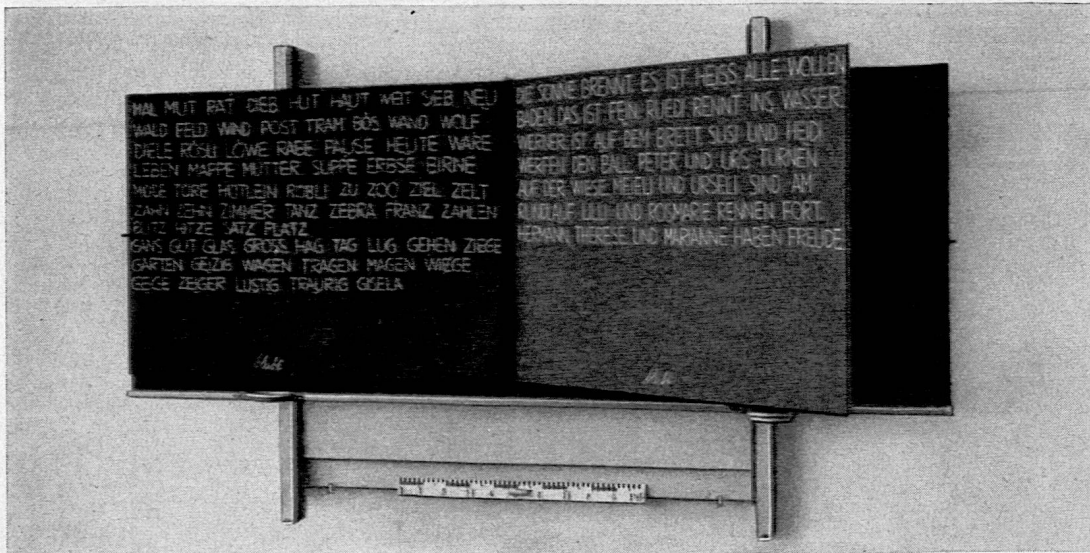 MAL MUT RAT DIEB HUT HAUT WEIT SIEB NEU
WALD FELD WIND POST TRAM BÖS WAND WOLF
DIELE RÖSLI LÖWE RABE PAUSE HEUTE WARE
LEBEN MAPPE MUTTER SUPPE ERBSE BIRNE
MODE TORE HÖTLEIN RÖBLI ZU ZOO ZIEL ZELT
ZAHN ZEHN ZIMMER TANZ ZEBRA FRANZ ZAHLEN
BLITZ HITZE SATZ PLATZ
GANS GUT GLAS GROSS HAG TAG LUG GEHEN ZIEGE
GARTEN GEIZIG WAGEN TRAGEN MAGEN WIEGE
GEIGE ZEIGER LUSTIG TRAURIG GISELA
DIE SONNE BRENNT ES IST HEISS ALLE WOLLEN
BADEN. DAS IST FEIN. RUEDI RENNT INS WASSER.
WERNER IST AUF DEM BRETT SUSI UND HEIDI
WERFEN DEN BALL. PETER UND URS TURNEN
AUF DER WIESE MEIELI UND URSELI SIND AM
RUNDLAUF LULU UND ROSMARIE RENNEN FORT.
HERMANN, THERESE UND MARIANNE HABEN FREUDE.